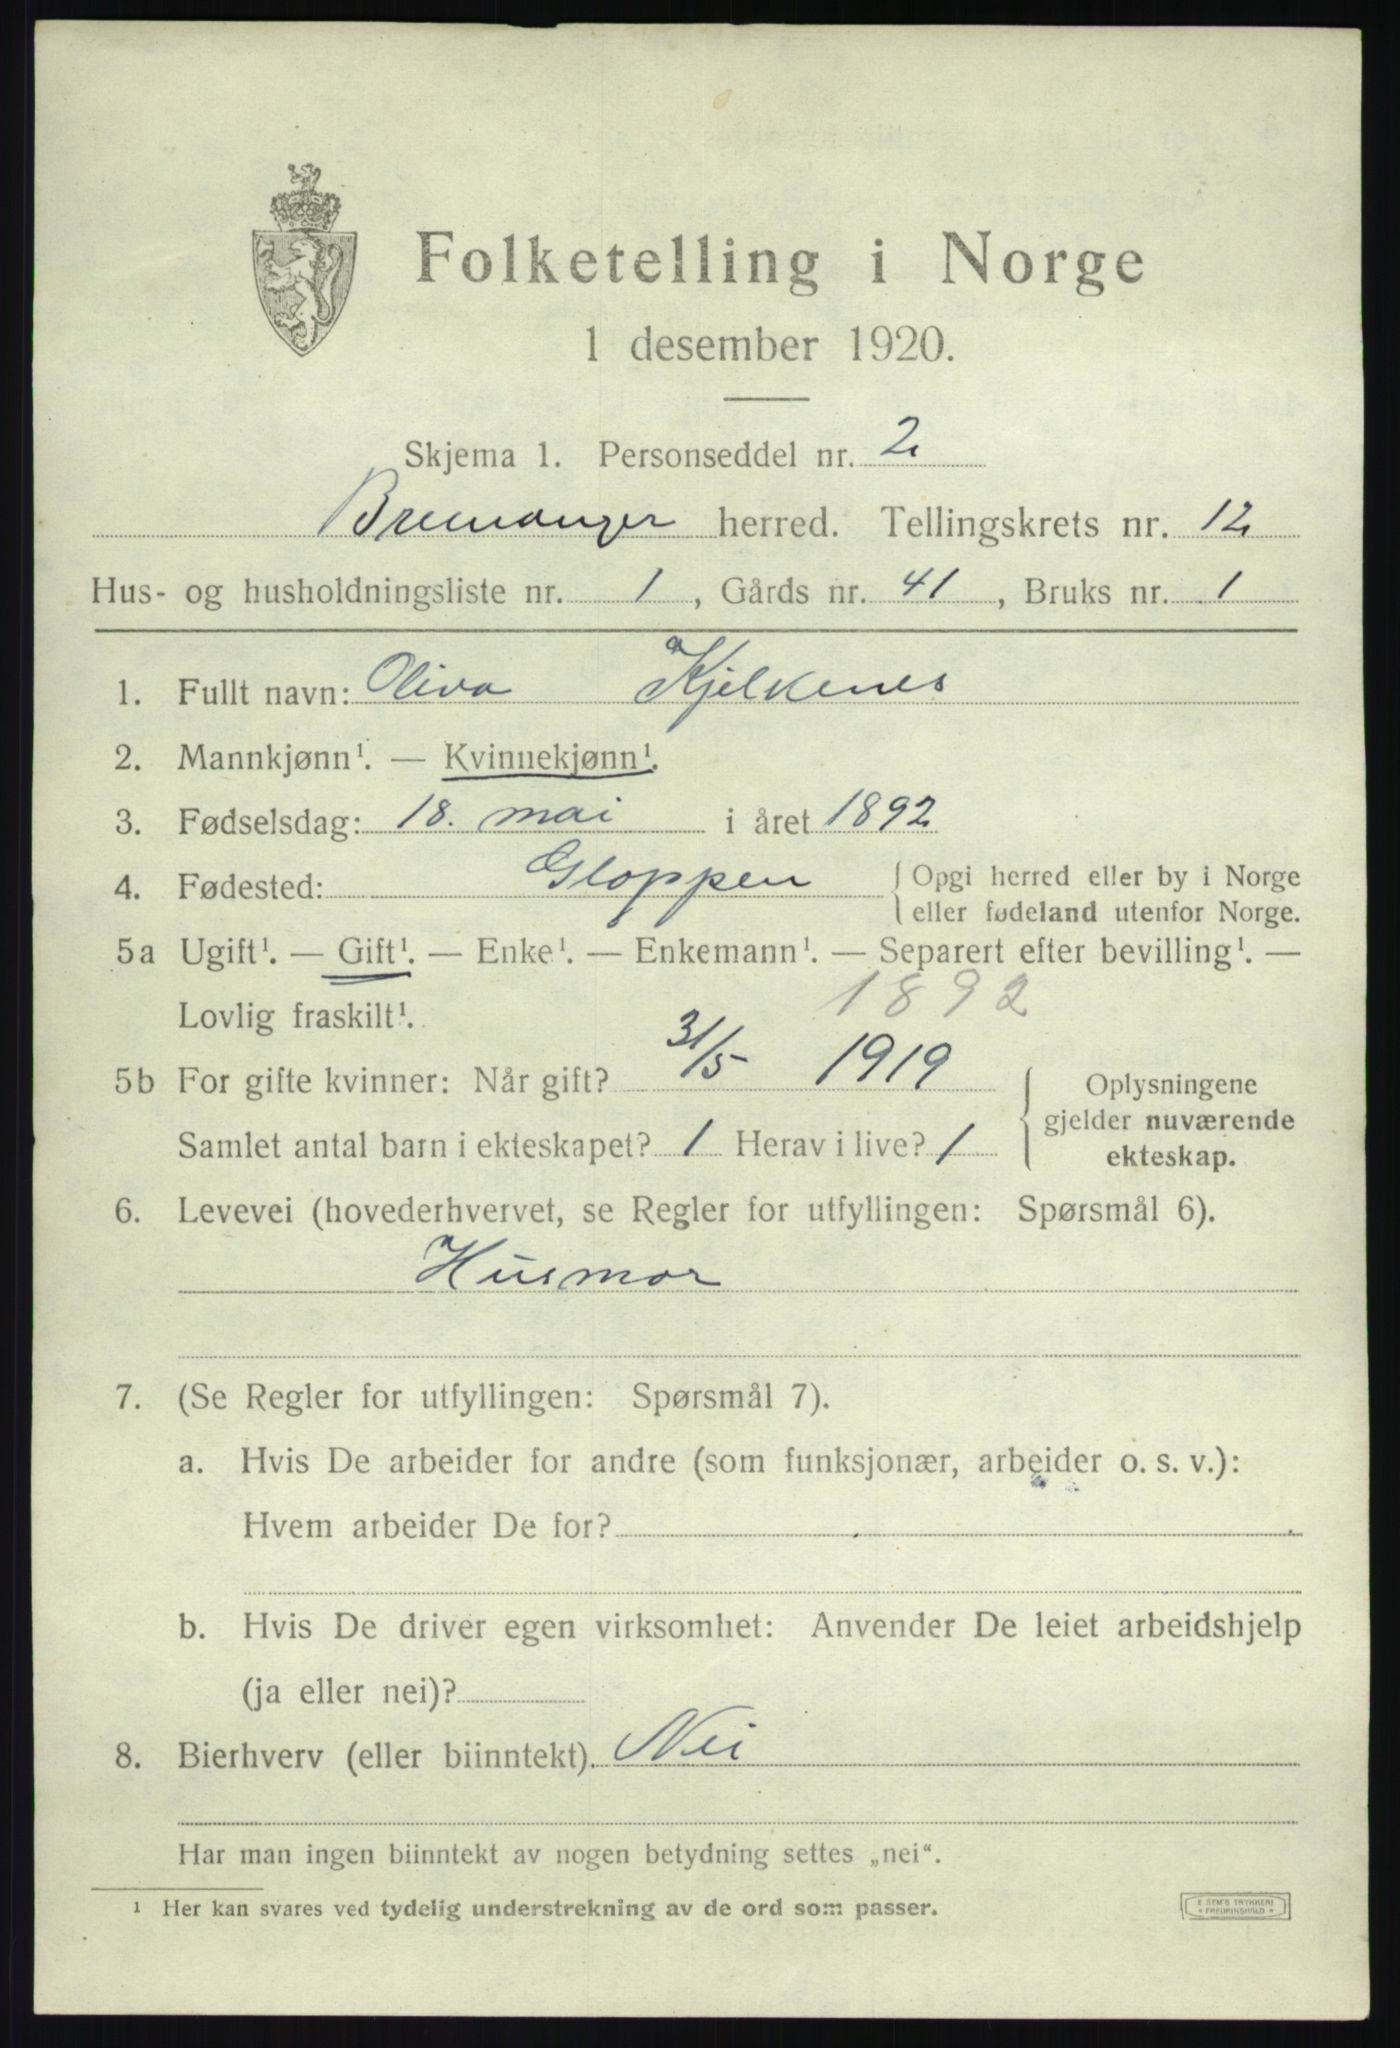 Folketelling i Norge
1 desember 1920.
Skjema 1. Personseddel nr. 2
Bremanger herred. Tellingskrets nr. 12
Hus- og husholdningsliste nr. 1, Gårds nr. 41, Bruks nr. 1
1. Fullt navn: Oliva Kjelkenes
2. Mannkjønn¹. — Kvinnekjønn¹.
3. Fødselsdag: 18. mai i året 1892
4. Fødested: Gloppen { Opgi herred eller by i Norge
eller fødeland utenfor Norge.
5a Ugift¹. — Gift¹. — Enke¹. — Enkemann¹. — Separert efter bevilling¹. —
Lovlig fraskilt¹. 1892
5b For gifte kvinner: Når gift? 31/5 1919 { Oplysningene
gjelder nuværende
Samlet antal barn i ekteskapet? 1 Herav i live? 1 ekteskap.
6. Levevei (hovederhvervet, se Regler for utfyllingen: Spørsmål 6).
Husmor
7. (Se Regler for utfyllingen: Spørsmål 7).
a. Hvis De arbeider for andre (som funksjonær, arbeider o. s. v.):
Hvem arbeider De for?
b. Hvis De driver egen virksomhet: Anvender De leiet arbeidshjelp
(ja eller nei)?
8. Bierhverv (eller biinntekt). Nei
Har man ingen biinntekt av nogen betydning settes „nei“.
¹ Her kan svares ved tydelig understrekning av de ord som passer.
E. SEM'S TRYKKERI
* FREDRIKSHALD *